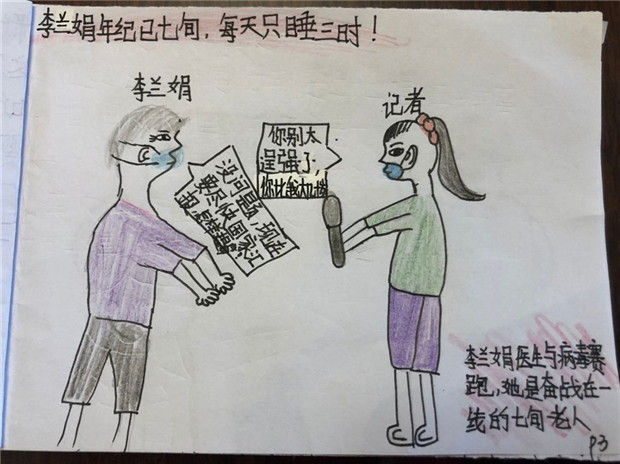 李兰娟年纪已七旬，每天只睡三时！
李兰娟
记者
你别太
逞强了，
你比我大几
没问题，现在
要尽快国家
李兰娟医生与病毒赛
跑，她是奋战在一
线的七旬老人
P3